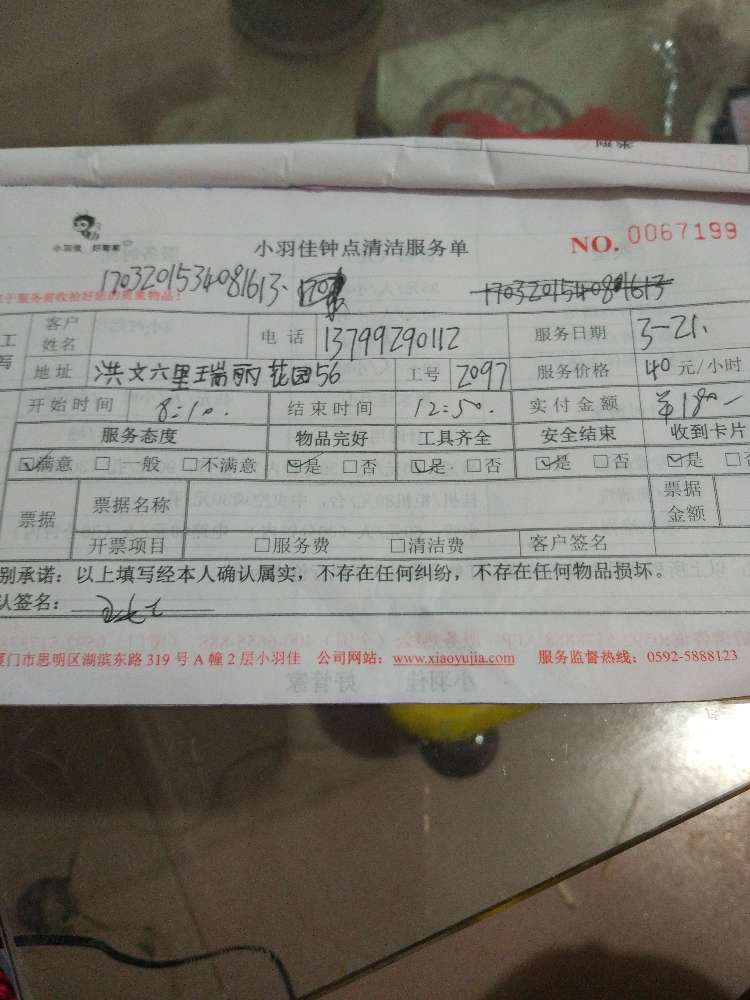 小羽佳 好管家
小羽佳钟点清洁服务单
NO. 0067199
1703201534081613
于服务前收拾好您的贵重物品!
客户姓名 电话 13799290112 服务日期 3-21.
地址 洪文六里瑞丽花园56 工号 2097 服务价格 40元/小时
开始时间 8:10. 结束时间 12:50. 实付金额 ¥180-
服务态度 物品完好 工具齐全 安全结束 收到卡片
☑满意 □一般 □不满意 ☑是 □否 ☑是 □否 ☑是 □否 ☑是 □
票据 票据名称 票据金额
开票项目 □服务费 □清洁费 客户签名
别承诺：以上填写经本人确认属实，不存在任何纠纷，不存在任何物品损坏。
认签名：
厦门市思明区湖滨东路 319 号 A 幢 2 层小羽佳 公司网站：www.xiaoyujia.com 服务监督热线：0592-5888123